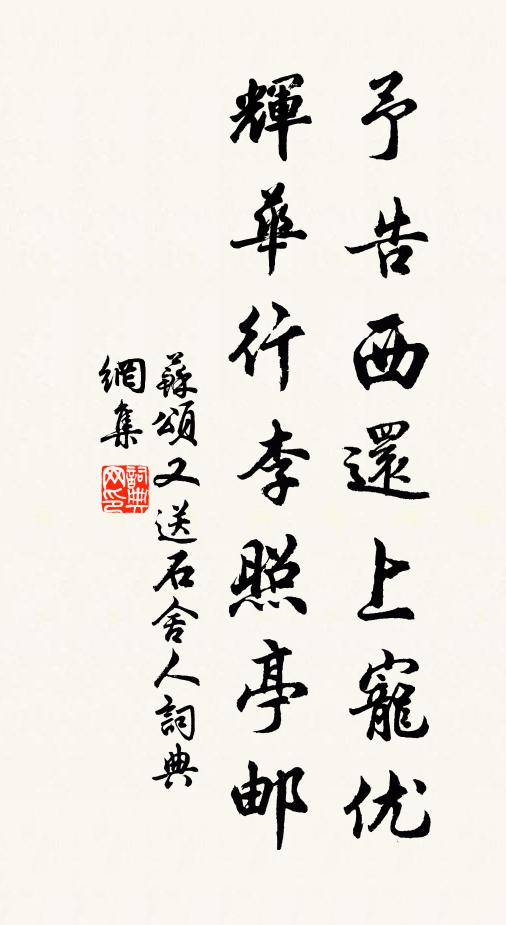 予告西還上寵优
輝華行李照亭邮
蘇頌又送石舍人詞典
網集
詞典
网印